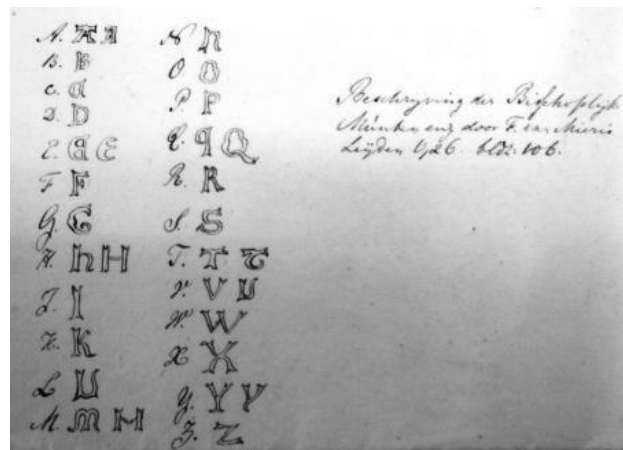 A. A A
B. B
C. C
D. D
E. E E
F. F
G. G
H. h H
I. I
K. K
L. L
M. M M
N. N
O. O
P. P
Q. q Q
R. R
S. S
T. T T
V. V V
W. W
X. X
Y. Y Y
Z. Z
Beschryving der Bisschoplyk
Munten enz door F. van Mieris
Leyden 1726. bldz. 106.